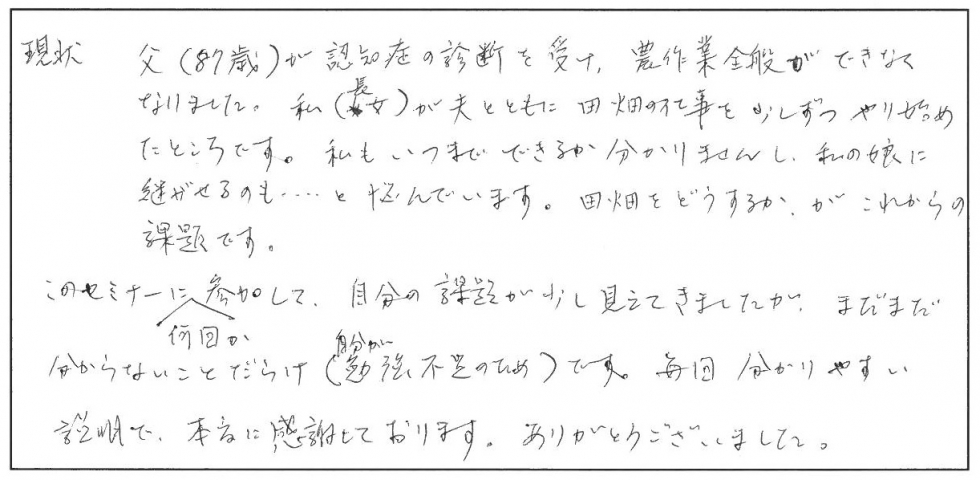 現状 父(87歳)が認知症の診断を受け、農作業全般ができなく
なりました。私(長女)が夫とともに田畑の仕事を少しずつやり始め
たところです。私もいつまでできるか分かりませんし、私の娘に
継がせるのも……と悩んでいます。田畑をどうするか、がこれからの
課題です。
このセミナーに何回か参加して、自分の課題が少し見えてきましたが、まだまだ
分からないことだらけ(自分が勉強不足のため)です。毎回分かりやすい
説明で、本当に感謝しております。ありがとうございました。